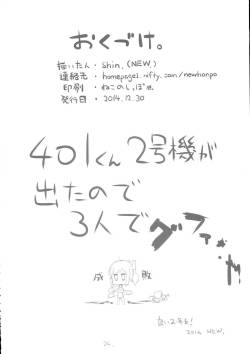 おくづけ。
描いたん・shin.(NEW.)
連絡先・homepage1.nifty.com/newhanpo
印刷・ねこのしっぽ
発行日・2014.12.30
401くん2号機が
出たので
3人で
グファ
成敗
2014 NEW.